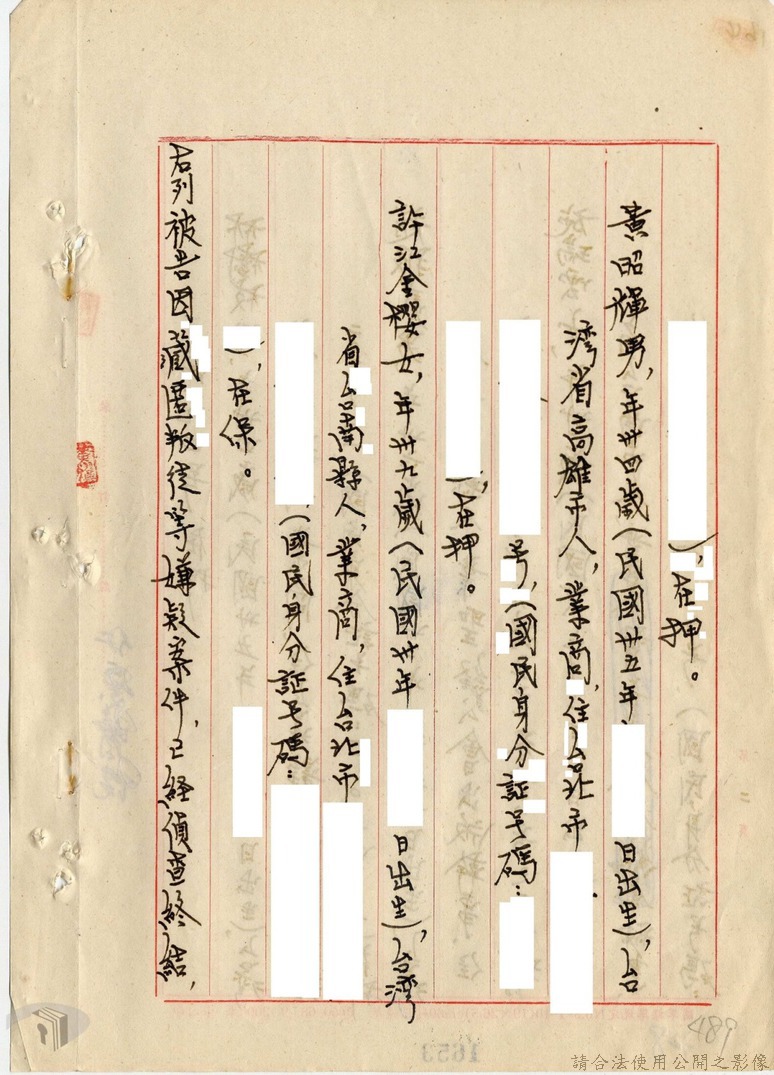 ），在押。
黃昭輝男，年卅四歲（民國卅五年 日出生），台
灣省高雄市人，業商，住台北市
号，（國民身分証号碼：
），在押。
許江金櫻女，年卅九歲（民國卅年 日出生），台灣
省台南縣人，業商，住台北市
（國民身分証号碼：
），在保。
右列被告因藏匿叛徒等嫌疑案件，已経偵查終結，
489
1653
請合法使用公開之影像